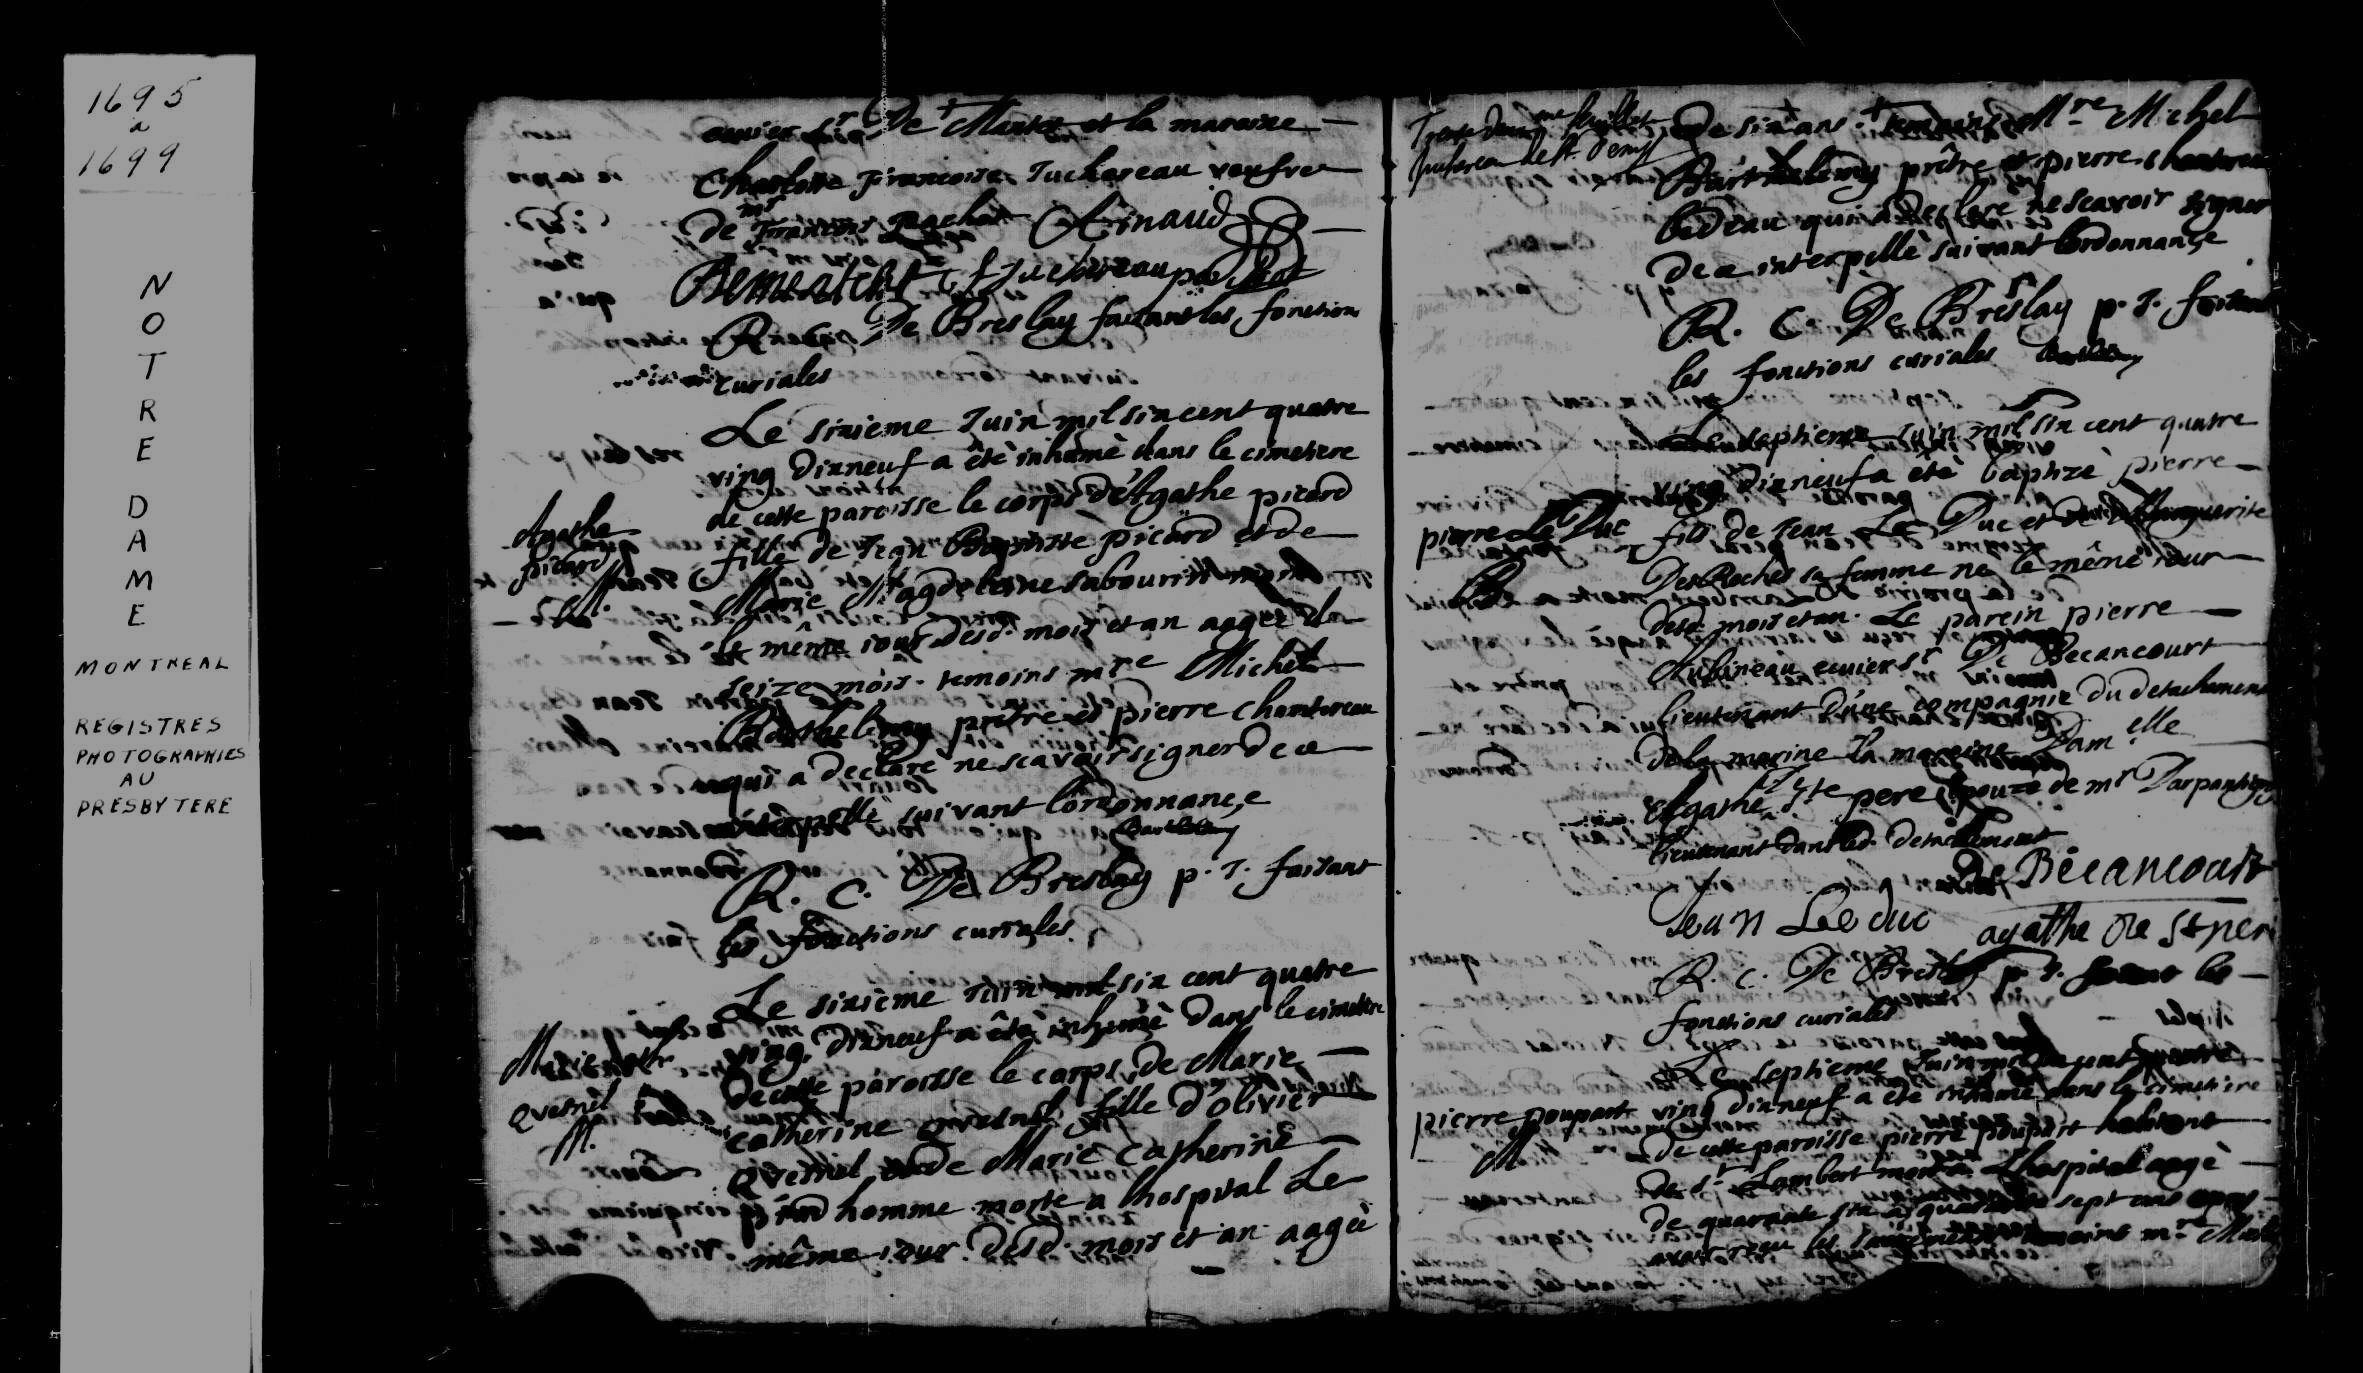 1695
a
1699
NOTRE
DAME
MONTREAL
REGISTRES
PHOTOGRAPHIES
AU
PRESBYTERE
De Mantet et la maraine
Charlotte Francoise Juchereau veufve
de mr Francois pachot Rinaud
f Juchereau pachot
De Breslay faisant les fonctions
curiales
Le sixieme Juin mil six cent quatre
ving dixneuf a êté inhumé dans le cimetiere
de cette paroisse le corps d'Agathe picard
Agathe
picard
M.
fille de Jean Baptiste picard et de
Marie Magdeleine sabourin morte
le même iour desd. mois et an aagée de
seize mois. temoins mre Michel
Barthelemy prêtre et pierre chantereau
qui a declaré ne scavoir signer de ce
interpellé suivant l'ordonnance
Barthelemy
R. C. De Breslay p. J. faisant
les fonctions curiales.
Le sixième Juin mil six cent quatre
ving dixneuf a êté inhumé dans le cimetiere
de cette paroisse le corps de Marie
Quesnel
M.
catherine quesnel fille d'olivier
Quesnel et de Marie Catherine
prud homme morte a lhospital Le
même iour desd. mois et an aagée
Juchereau de St. Denis
de six ans. temoins Mre Michel
Barthelemy prêtre et pierre chantereau
bedeau qui a declaré ne scavoir signer
de ce interpellé suivant lordonnance
R. C. De Breslay p. J. faisant
les fonctions curiales Barthelemy
Le septieme Juin mil six cent quatre
ving dixneuf a êté baptizé pierre
pierre Le Duc
B
fils de Jean Le Duc et de Marguerite
Des Roches sa femme né le même iour
desd. mois et an. Le parein pierre
Robineau ecuier sr De Becancourt
lieutenant d'une compagnie du detachement
de la marine la mareine Damelle
Agathe De Ste pere epouze de mr Darpentigny
lieutenant dans led. detachement
De Bécancourt
Jean Leduc agathe de St per
R. C. De Breslay p. J. faisant les
fonctions curiales
Le septieme Juin mil six cent quatre
pierre poupart
M
ving dixneuf a êté inhumé dans le cimetiere
de cette paroisse pierre poupart habitant
de St Lambert mort a Lhospital aagé
de quarante six a quarante sept ans apres
avoir reçu les sacremens temoins mr